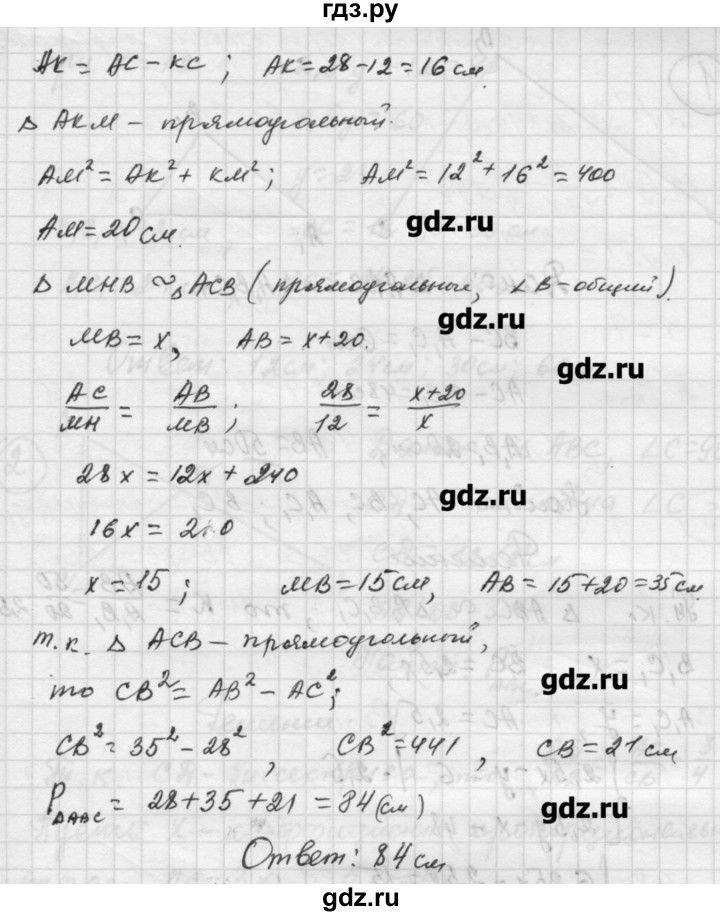 гдз.ру
AK = AC – KC ; AK = 28 – 12 = 16 см
Δ AKM – прямоугольный.
AM² = AK² + KM² ; AM² = 12² + 16² = 400
AM = 20 см.
gdz.ru
Δ MHB ~ Δ ACB (прямоугольные, ∠B – общий).
gdz.ru
MB = x, AB = x + 20.
gdz.ru
AC/MH = AB/MB ; 28/12 = x+20/x
28x = 12x + 240
gdz.ru
16x = 240
x = 15 ; MB = 15 см, AB = 15 + 20 = 35 см.
т.к. Δ ACB – прямоугольный,
то CB² = AB² – AC² ;
gdz.ru
CB² = 35² – 28² , CB² = 441 , CB = 21 см
P ΔABC = 28 + 35 + 21 = 84 (см)
gdz.ru
Ответ: 84 см
gdz.ru